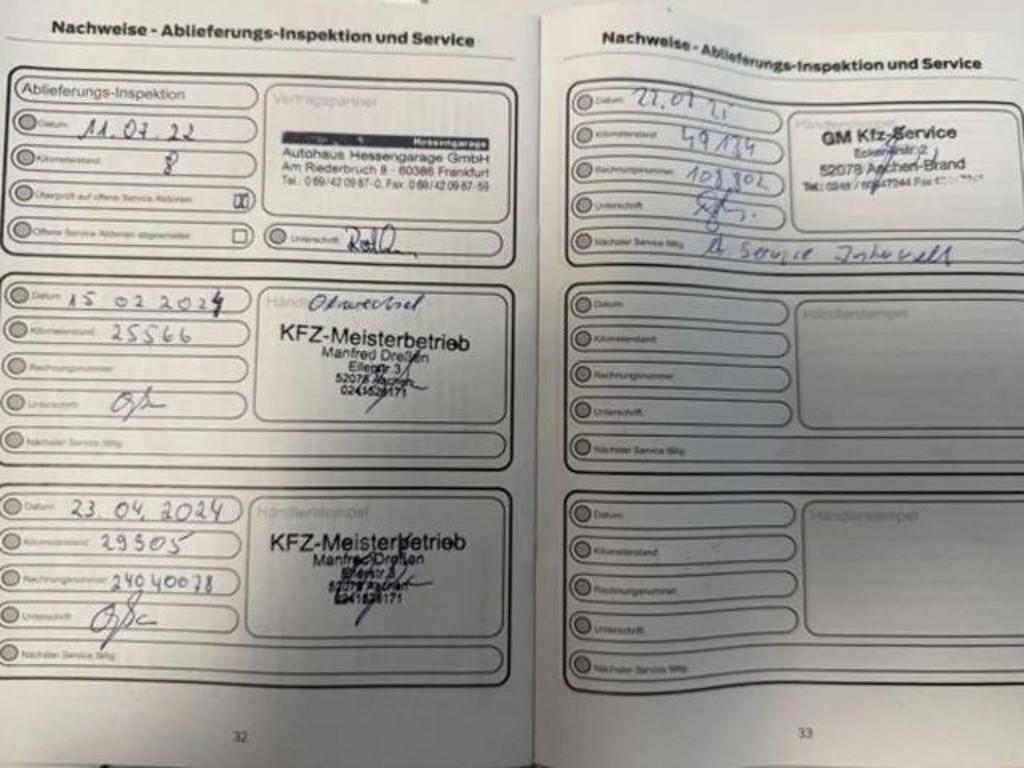 Nachweise - Ablieferungs-Inspektion und Service
Ablieferungs-Inspektion
Datum: 11.07.22
Kilometerstand: 8
Überprüft auf offene Service Aktionen: X
Offene Service Aktionen abgearbeitet:
Vertragspartner
Hessengarage
Autohaus Hessengarage GmbH
Am Riederbruch 8 - 60386 Frankfurt
Tel.: 069/42 09 87-0, Fax: 0 69/42 09 87-59
Unterschrift:
Datum: 15 02 2024
Kilometerstand: 25566
Rechnungsnummer:
Unterschrift:
Nächster Service fällig:
Ölwechsel
KFZ-Meisterbetrieb
Manfred Dreßen
Ellerstr. 3
52078 Aachen
Datum: 23.04.2024
Kilometerstand: 29505
Rechnungsnummer: 24040078
Unterschrift:
Nächster Service fällig:
Händlerstempel
KFZ-Meisterbetrieb
Manfred Dreßen
Ellerstr. 3
52078 Aachen
32
Nachweise - Ablieferungs-Inspektion und Service
Datum:
Kilometerstand: 49134
Rechnungsnummer: 108802
Unterschrift:
Nächster Service fällig: Service Intervall
Händlerstempel
GM Kfz-Service
52078 Aachen-Brand
Datum:
Kilometerstand:
Rechnungsnummer:
Unterschrift:
Nächster Service fällig:
Händlerstempel
Datum:
Kilometerstand:
Rechnungsnummer:
Unterschrift:
Nächster Service fällig:
Händlerstempel
33